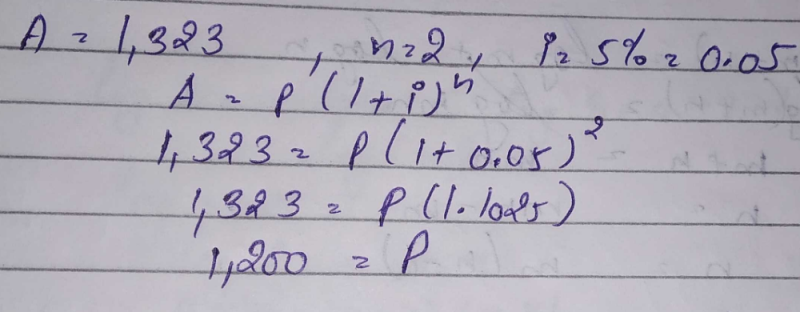 A = 1,323 , n=2, i= 5% = 0.05
A = P (1+i)^n
1,323 = P(1+0.05)^2
1,323 = P(1.1025)
1,200 = P